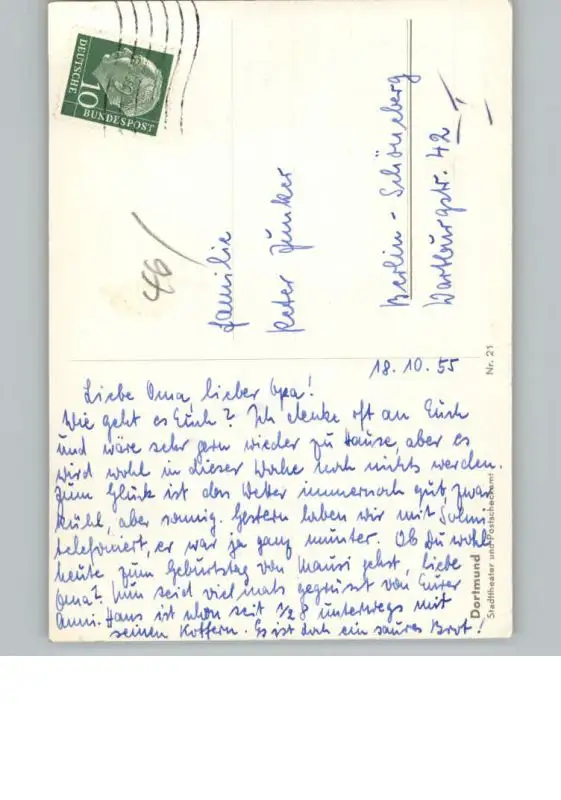 DEUTSCHE
BUNDESPOST
10
46
Familie
Peter Junker
Berlin - Schöneberg
Wartburgstr. 42
Nr. 21
Dortmund
Stadttheater und Postscheckamt
18.10.55
Liebe Oma lieber Opa!
Wie geht es Euch? Ich denke oft an Euch
und wäre sehr gern wieder zu Hause, aber es
wird wohl in dieser Woche noch nichts werden.
Zum Glück ist das Wetter immernoch gut, zwar
kühl, aber sonnig. Gestern haben wir mit
telefoniert, er war ja ganz munter. Ob Du wohl
heute zum Geburtstag von Mausi gehst, liebe
Oma? Nun seid vielmals gegrüsst von Eurer
Anni. Hans ist schon seit 1/2 8 unterwegs mit
seinen Koffern. Es ist doch ein saures Brot!